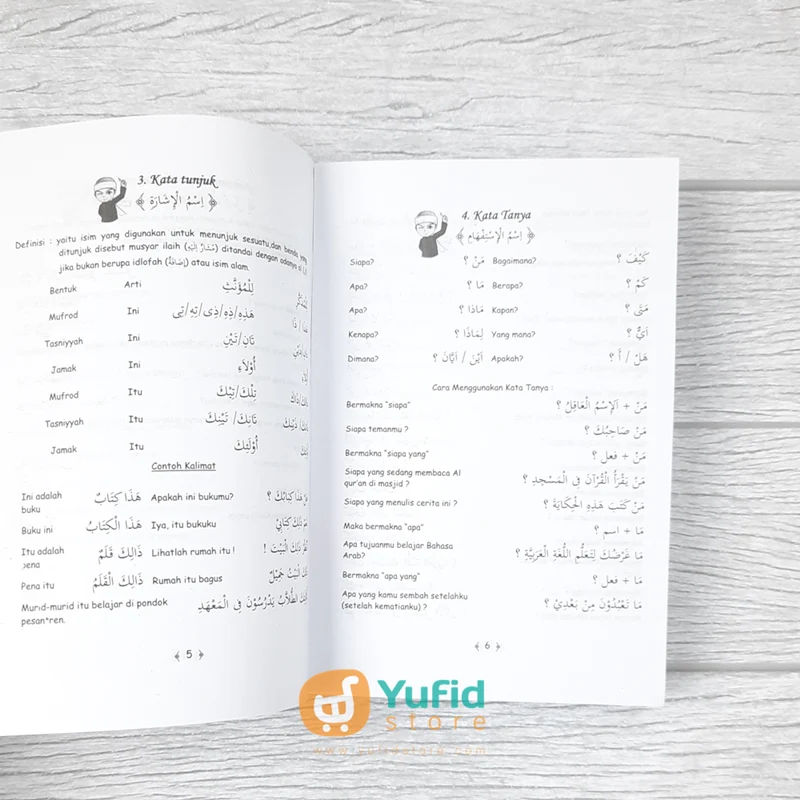 3. Kata tunjuk
﴿ اِسْمُ الْإِشَارَةِ ﴾
Definisi : yaitu isim yang digunakan untuk menunjuk sesuatu,dan benda yang
ditunjuk disebut musyar ilaih (مُشَارٌ إِلَيْهِ) ditandai dengan adanya
jika bukan berupa idlofah (إِضَافَةٌ) atau isim alam.
Bentuk Arti لِلْمُؤَنَّثِ
Mufrod Ini هَذِهِ/ذِهِ/ذِى/تِهِ/تِى
Tasniyyah Ini تَانِ/تَيْنِ
Jamak Ini أُوْلَاءِ
Mufrod Itu تِلْكَ/تِيْكَ
Tasniyyah Itu تَانِكَ/ تَيْنِكَ
Jamak Itu أُوْلَئِكَ
Contoh Kalimat
Ini adalah buku هَذَا كِتَابٌ Apakah ini bukumu? هَذَا كِتَابُكَ ؟
Buku ini هَذَا الْكِتَابُ Iya, itu bukuku ذَلِكَ كِتَابِيْ
Itu adalah pena ذَالِكَ قَلَمٌ Lihatlah rumah itu ! ذَلِكَ الْبَيْتَ !
Pena itu ذَالِكَ الْقَلَمُ Rumah itu bagus الْبَيْتُ جَمِيْلٌ
Murid-murid itu belajar di pondok الطُّلَّابُ يَدْرُسُوْنَ فِى الْمَعْهَدِ
pesantren.
﴾ 5 ﴿
4. Kata Tanya
﴿ اِسْمُ الْاِسْتِفْهَامِ ﴾
Siapa? مَنْ ؟ Bagaimana? كَيْفَ ؟
Apa? مَا ؟ Berapa? كَمْ ؟
Apa? مَاذَا ؟ Kapan? مَتَى ؟
Kenapa? لِمَاذَا ؟ Yang mana? اَيٌّ ؟
Dimana? اَيْنَ / اَيَّانَ ؟ Apakah? هَلْ / أَ ؟
Cara Menggunakan Kata Tanya :
Bermakna "siapa" مَنْ + اَلْإِسْمُ الْعَاقِلُ ؟
Siapa temanmu ? مَنْ صَاحِبُكَ ؟
Bermakna "siapa yang" مَنْ + فعل ؟
Siapa yang sedang membaca Al
qur'an di masjid ? مَنْ يَقْرَأُ الْقُرْآنَ فِى الْمَسْجِدِ ؟
Siapa yang menulis cerita ini ? مَنْ كَتَبَ هَذِهِ الْحِكَايَةَ ؟
Maka bermakna "apa" مَا + اسم ؟
Apa tujuanmu belajar Bahasa
Arab? مَا غَرْضُكَ لِتَعَلُّمِ اللُّغَةِ الْعَرَبِيَّةِ ؟
Bermakna "apa yang" مَا + فعل ؟
Apa yang kamu sembah setelahku
(setelah kematianku) ? مَا تَعْبُدُوْنَ مِنْ بَعْدِيْ ؟
﴾ 6 ﴿
Yufid
store
www.yufidstore.com